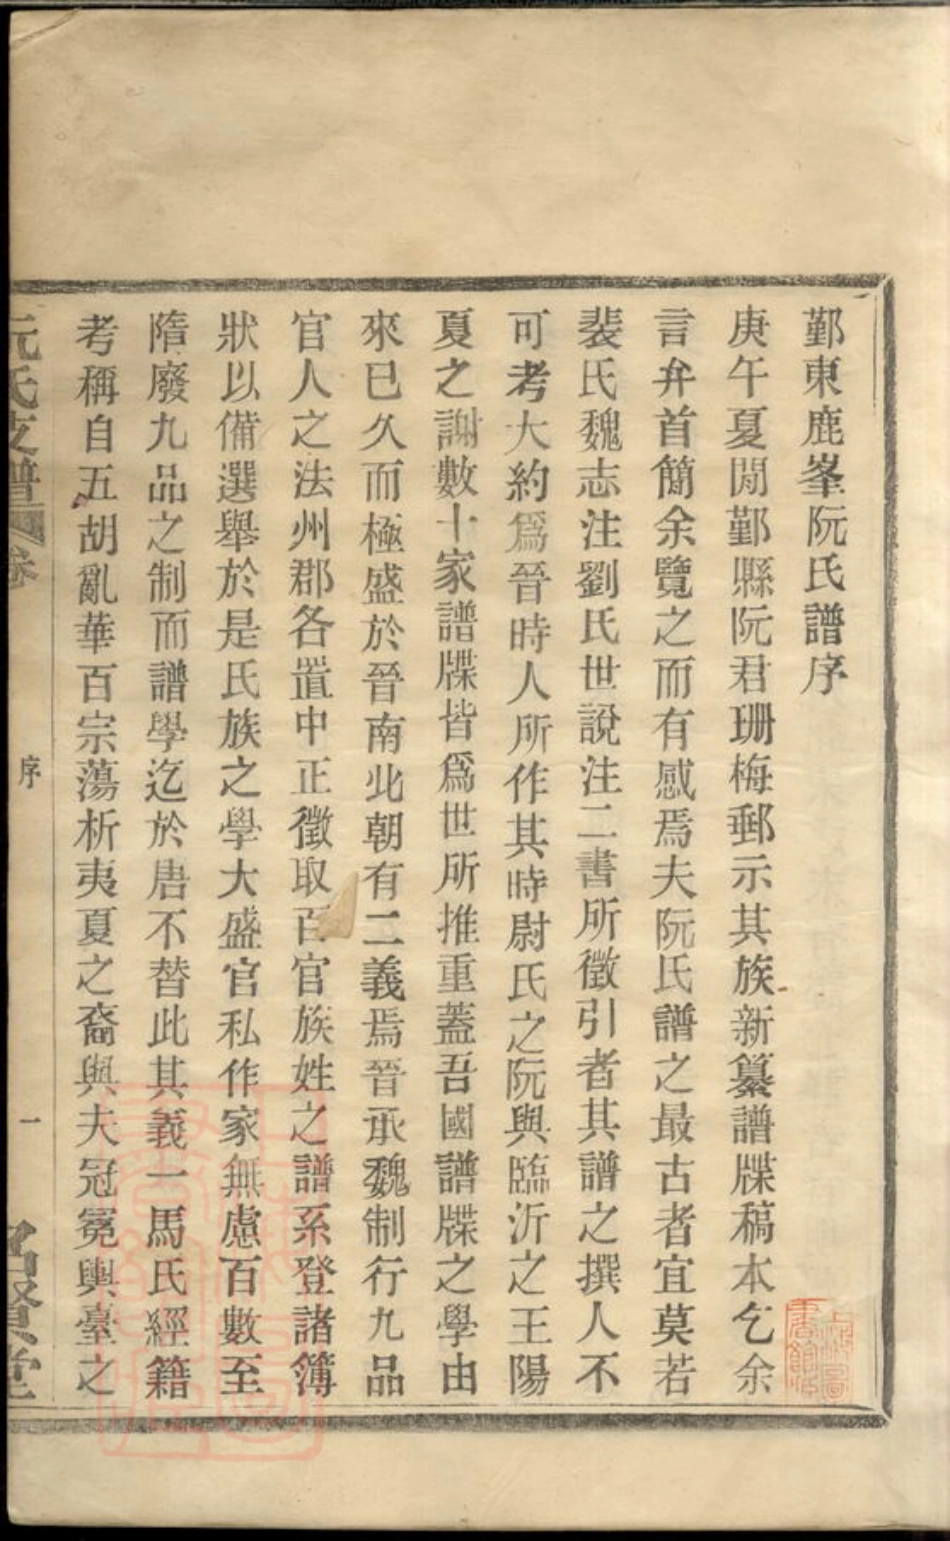 鄞東鹿峯阮氏譜序
庚午夏閒鄞縣阮君珊梅郵示其族新纂譜牒稿本乞余
言弁首簡余覽之而有感焉夫阮氏譜之最古者宜莫若
裴氏魏志注劉氏世說注二書所徵引者其譜之撰人不
可考大約爲晉時人所作其時尉氏之阮與臨沂之王陽
夏之謝數十家譜牒皆爲世所推重蓋吾國譜牒之學由
來已久而極盛於晉南北朝有二義焉晉承魏制行九品
官人之法州郡各置中正徵取百官族姓之譜系登諸簿
狀以備選舉於是氏族之學大盛官私作家無慮百數至
隋廢九品之制而譜學迄於唐不替此其義一馬氏經籍
考稱自五胡亂華百宗蕩析夷夏之裔與夫冠冕輿臺之
阮氏支譜 卷 序 一 名賢堂